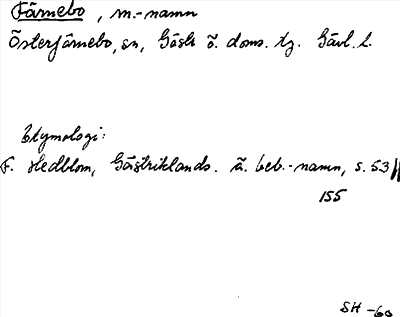 Färnebo, m.-namn
Österfärnebo, sn, Gästr ö. doms. tg. Gävl. l.
Etymologi:
F. Hedblom, Gästriklands ä. beb.-namn, s. 53 ff
155
SH -60